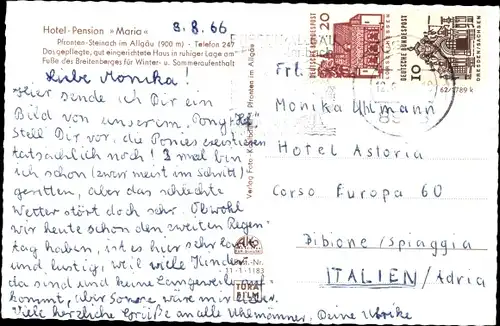 Hotel-Pension »Maria« 8.8.66
Pfronten-Steinach im Allgäu (900 m) - Telefon 247
Das gepflegte, gut eingerichtete Haus in ruhiger Lage am
Fuße des Breitenberges für Winter- u. Sommeraufenthalt
Liebe Monika!
Hier sende ich Dir ein
Bild von unserem "Pony-Hof"
Stell Dir vor, die Ponies existieren
tatsächlich noch! 3 mal bin
ich schon (zwar meist im Schritt)
geritten, aber das schlechte
Wetter stört doch sehr. Obwohl
wir heute schon den zweiten Regen-
tag haben, ist es hier sehr
und lustig, weil viele Kinder
da sind und keine Langeweile
kommt, aber Sonne wäre mir lieber.
Viele herzliche Grüße an alle Uhlmänner, Deine Ulrike
Verlag Foto-K Pfronten im Allgäu
AK
Nr.
11-1-1183
TURA
FILM
20
DEUTSCHE BUNDESPOST
LORSCH/HESSEN
10
DEUTSCHE BUNDESPOST
DRESDEN/SACHSEN
62/1789 k
89
Frl.
Monika Uhlmann
Hotel Astoria
Corso Europa 60
Bibione/Spiaggia
ITALIEN/Adria